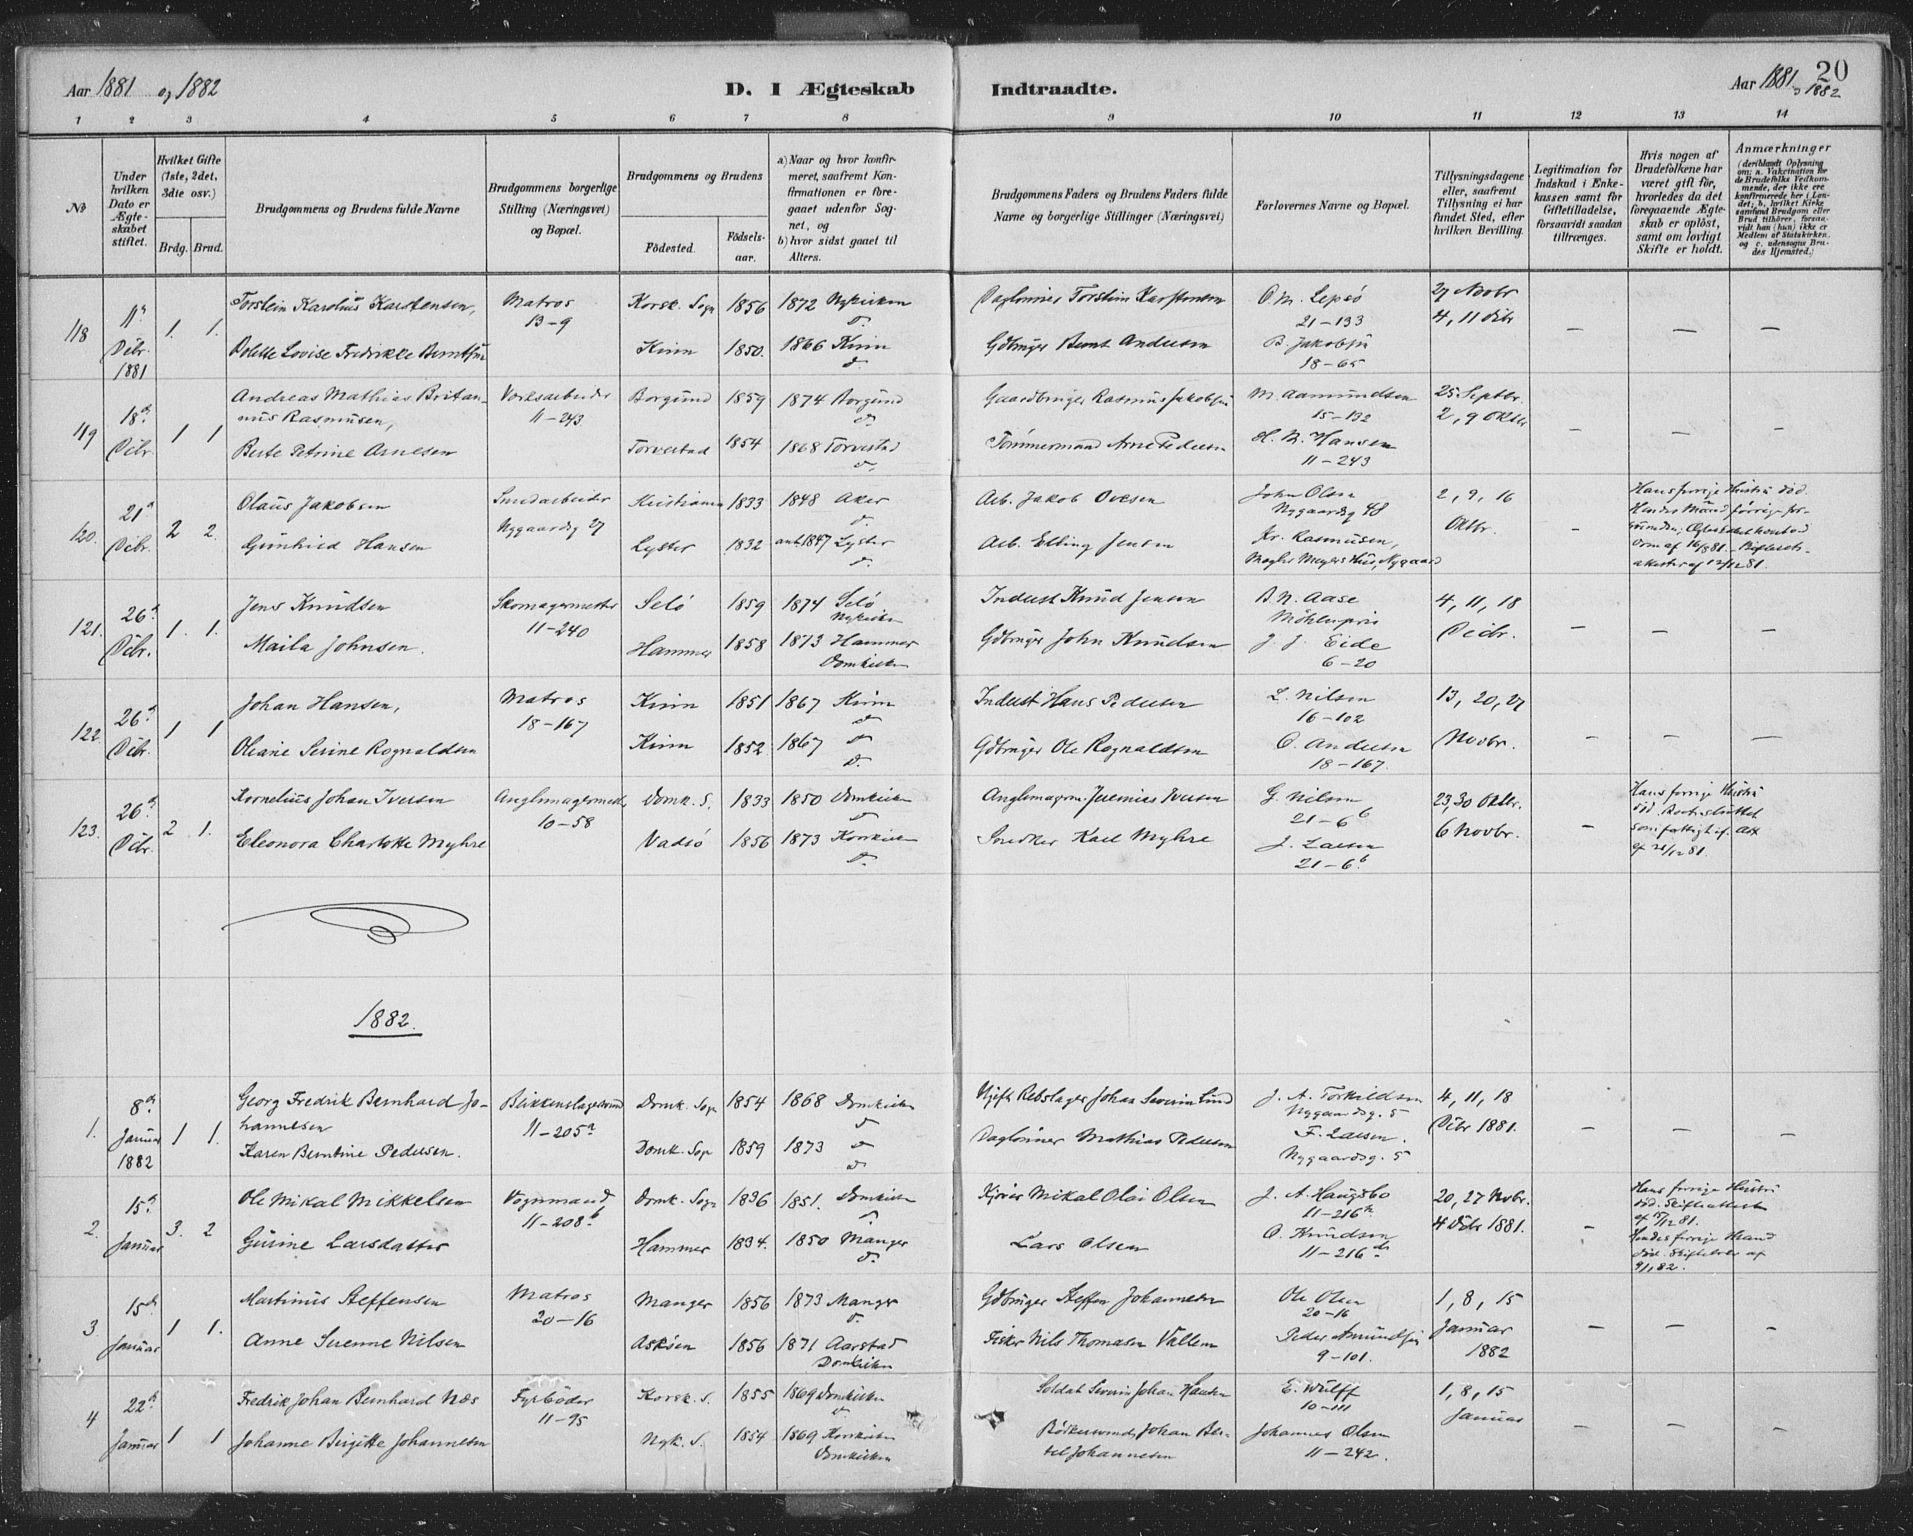 Aar 1881 og 1882
D. I Ægteskab
Indtraadte.
Aar 1881 og 1882
20
1 2 3 4 5 6 7 8 9 10 11 12 13 14
No
Under hvilken Dato er Ægteskabet stiftet.
Hvilket Gifte (1ste, 2det, 3die osv.)
Brdg. Brud.
Brudgommens og Brudens fulde Navne
Brudgommens borgerlige Stilling (Næringsvei) og Bopæl.
Brudgommens og Brudens
Födested.
Födselsaar.
a) Naar og hvor konfirmeret, saafremt Konfirmationen er foregaaet udenfor Sognet, og
b) hvor sidst gaaet til Alters.
Brudgommens Faders og Brudens Faders fulde Navne og borgerlige Stillinger (Næringsvei)
Forlovernes Navne og Bopæl.
Tillysningsdagene eller, saafremt Tillysning ei har fundet Sted, efter hvilken Bevilling.
Legitimation for Indskud i Enkekassen samt for Giftetilladelse, forsaavidt saadan tiltrænges.
Hvis nogen af Brudefolkene har været gift för, hvorledes da det foregaaende Ægteskab er oplöst, samt om lovligt Skifte er holdt.
Anmærkninger
(deriblandt Oplysning om: a. Vakcination for de Brudefolks Vedkommende, der ikke ere konfirmerede her i Landet; b. hvilket Kirkesamfund Brudgom eller Brud tilhörer, forsaavidt han (hun) ikke er Medlem af Statskirken, og c. udensogns Brudes Hjemsted.)
118 11te Dcbr. 1881 1. 1. Torstein Karolius Karstensen, Matros 13-9 Korsk. Sogn 1856 1872 Nykirken d. Daglönner Torstein Karstensen O. M. Lepsö 21-133 27 Novbr 4, 11 Dcbr — — —
Dolette Lovise Fredrikke Berntsen Kinn 1850. 1866 Kinn d Gdbruger Bernt Andersen B. Jakobsen 18-65
119 18de Dcbr. 1 1 Andreas Mathias Britannus Rasmusen, Værksarbeider 11-243 Borgund 1859 1874 Borgund d Gaardbruger Rasmus Jakobsen M. Aamundsen 15-132 25 Septbr. 2, 9 Oktbr — — —
Berte Petrine Arnesen Torvestad 1854 1868 Torvestad d. Tömmermand Arne Pedersen H. B. Hansen 11-243
120. 21de Dcbr. 2 2. Olaus Jakobsen Smedarbeider Nygaardsg 27 Kristiania 1833 1848 Aker d. Arb. Jakob Ovesen John Olsen Nygaardsg 48 2, 9, 16 Oktbr. — Hans forrige Hustru död.
Gunhild Hansen Lyster 1832 ant. 1847 Lyster d. Arb. Elling Jensen Kr. Rasmusen, Mægler Meyers Hus, Nygaard
121. 26de Dcbr. 1. 1. Jens Knudsen Skomagermester 11-240 Selö 1859 1874 Selö Nykirken Inderst Knud Jensen B. N. Aase Möhlenpris 4, 11, 18 Decbr. — — —
Maila Johnsen. Hammer 1858 1873 Hammer Domkirken Gdbruger John Knudsen J. J. Eide 6-20
122 26de Dcbr. 1 1 Johan Hansen, Matros 18-167 Kinn 1851 1867 Kinn d Inderst Hans Pedersen L. Nilsen 16-102 13, 20, 27 Novbr. — — —
Oleane Serine Rognaldsen Kinn 1852. 1867 d d. Gdbruger Ole Rognaldsen O. Andersen 18-167.
123. 26de Dcbr. 2 1. Kornelius Johan Iversen 10-58 Domk. S. 1833 1850 Domkirken d Jeremias Iversen G. Nilsen 21-6b 23, 30 Oktbr. 6 Novbr. — Hans forrige Hustru död.
Eleonora Charlotte Myhre Vadsö 1856 1873 Korskirken d. Snedker Karl Myhre J. Larsen 21-6b
1882.
1. 8de Januar 1882 1 1. Georg Fredrik Bernhard Johannesen Blikkenslagersvend 11-205a Domk. Sogn 1854 1868 Domkirken d Rebslager Johan Severin Lund J. A. Torkildsen Nygaardsg. 5 4, 11, 18 Dcbr 1881. — — —
Karen Berntine Pedersen. Domk. Sogn 1859 1873 d d Daglönner Mathias Pedersen F. Larsen. Nygaardsg. 5
2. 15de Januar 3. 2 Ole Mikal Mikkelsen Vognmand, 11-208b Domk. Sogn 1836 1851. Domkirken d. Mikal Olai Olsen J. A. Haugsbo 11-216 20, 27 Novbr. 4 Dcbr 1881. — Hans forrige Hustru död. Skifteattest af 15/12 81.
Gurine Larsdatter Hammer 1834. 1850 Manger d. Lars Olsen O. Knudsen 11-216 Hendes forrige Mand död. af 9/1 82.
3. 15de Januar 1 1. Martinus Steffensen Matros 20-16 Manger 1856 1873 Manger d. Gdbruger Steffen Johannesen Ole Olsen 20-16 1, 8, 15 Januar 1882 — — —
Anne Nilsen Asköen 1856 1871 Aarstad Domkirken Fisker Nils Thomasen Vallem Peder Amundsen 9-101.
4 22de Januar 1 1 Fredrik Johan Bernhard Næs Fyrböder 11-95 Korsk. S. 1855 1869 Domkirken d Soldat Severin Johan Hansen E. Wulff 10-111 1, 8, 15 Januar — — —
Johanne Birgitte Johannesen Nyk. S. 1854 1869 Korskirken Domkirken Bödkersvend Johan Bertel Johannesen Johannes Olsen 11-242.